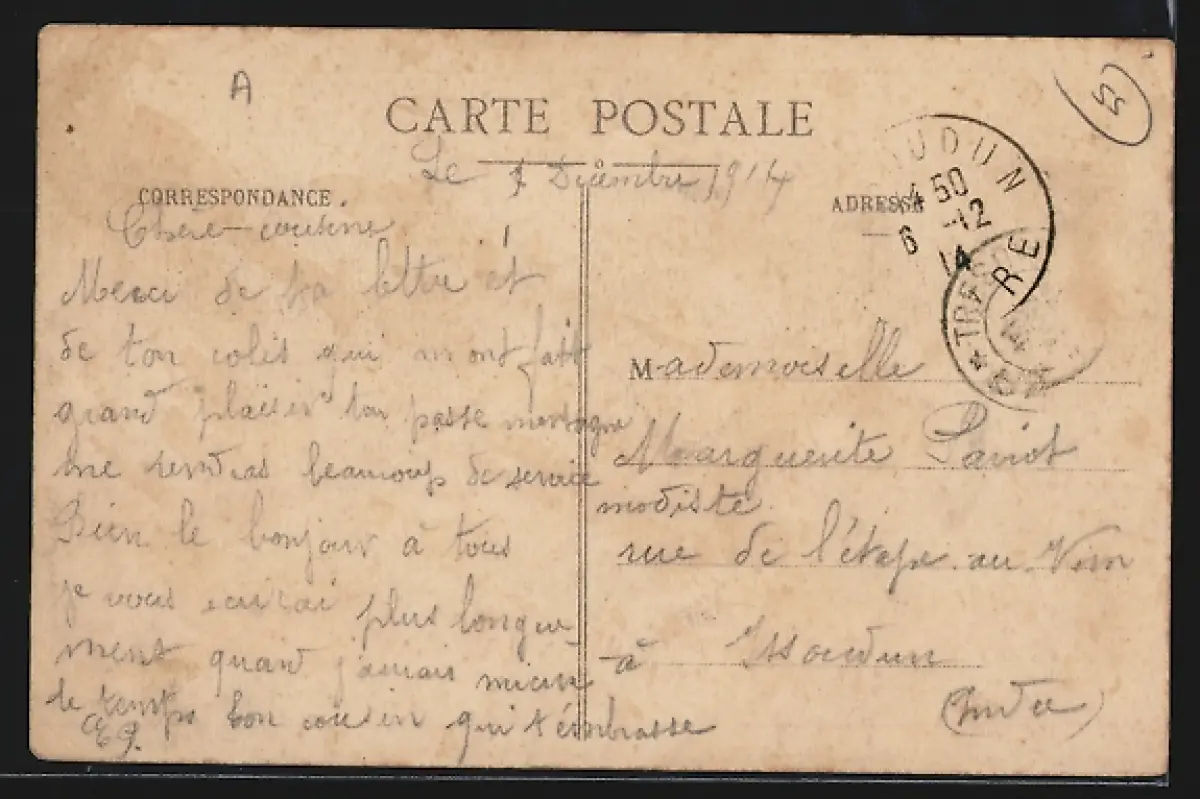 A
55
CARTE POSTALE
Le 1 Décembre 1914
CORRESPONDANCE.
ADRESSE
Chère cousine
Merci de ta lettre et
de ton colis qui mont fait
grand plaisir ton passe montagne
me rendras beaucoup de service
Bien le bonjour à tous
je vous écrirai plus longue-
ment quand j'aurais mieux
le temps ton cousin qui t'émbrasse
EP.
OUDUN
4 50
6 -12
14
RE
* TRESOR
Mademoiselle
Marguerite Paviot
modiste
rue de l'étape au Vin
à Issoudun
(Indre)